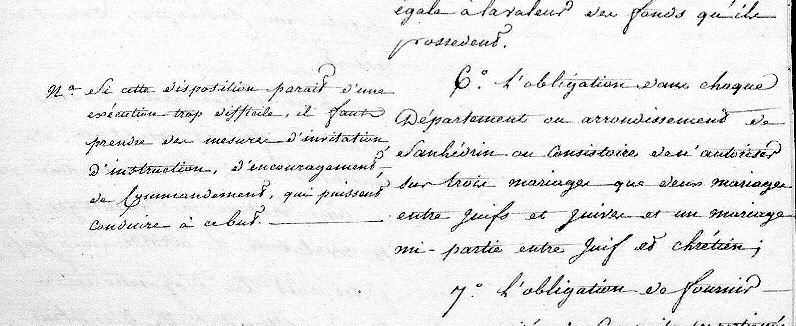 égale à la valeur des fonds qu'ils
possèdent.
Na Si cette disposition parait d'une
exécution trop difficile, il faut
prendre des mesures d'invitation,
d'instruction, d'encouragement,
de Commandement, qui puissent
conduire à ce but.
6.° L'obligation dans chaque
Département ou arrondissement de
Sanhédrin ou Consistoire de n'autoriser
sur trois mariages que deux mariages
entre juifs et juives et un mariage
mi-partie entre Juif et chrétien;
7.° L'obligation de fournir